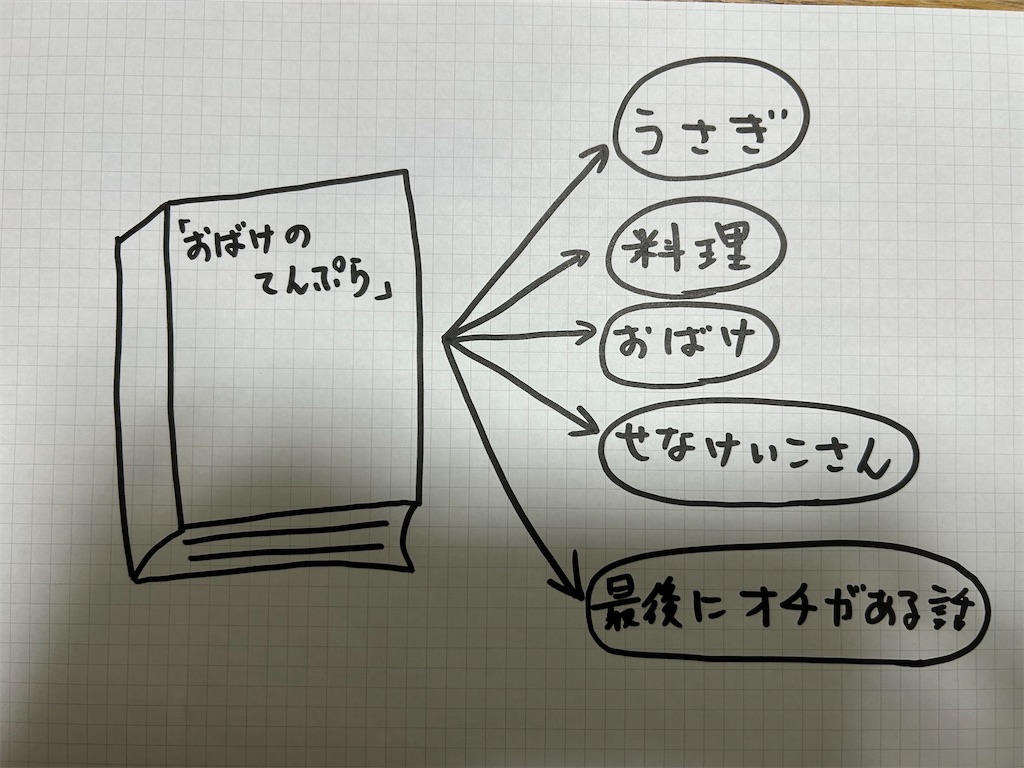 「おばけの
てんぷら」
うさぎ
料理
おばけ
せなけいこさん
最後にオチがある話